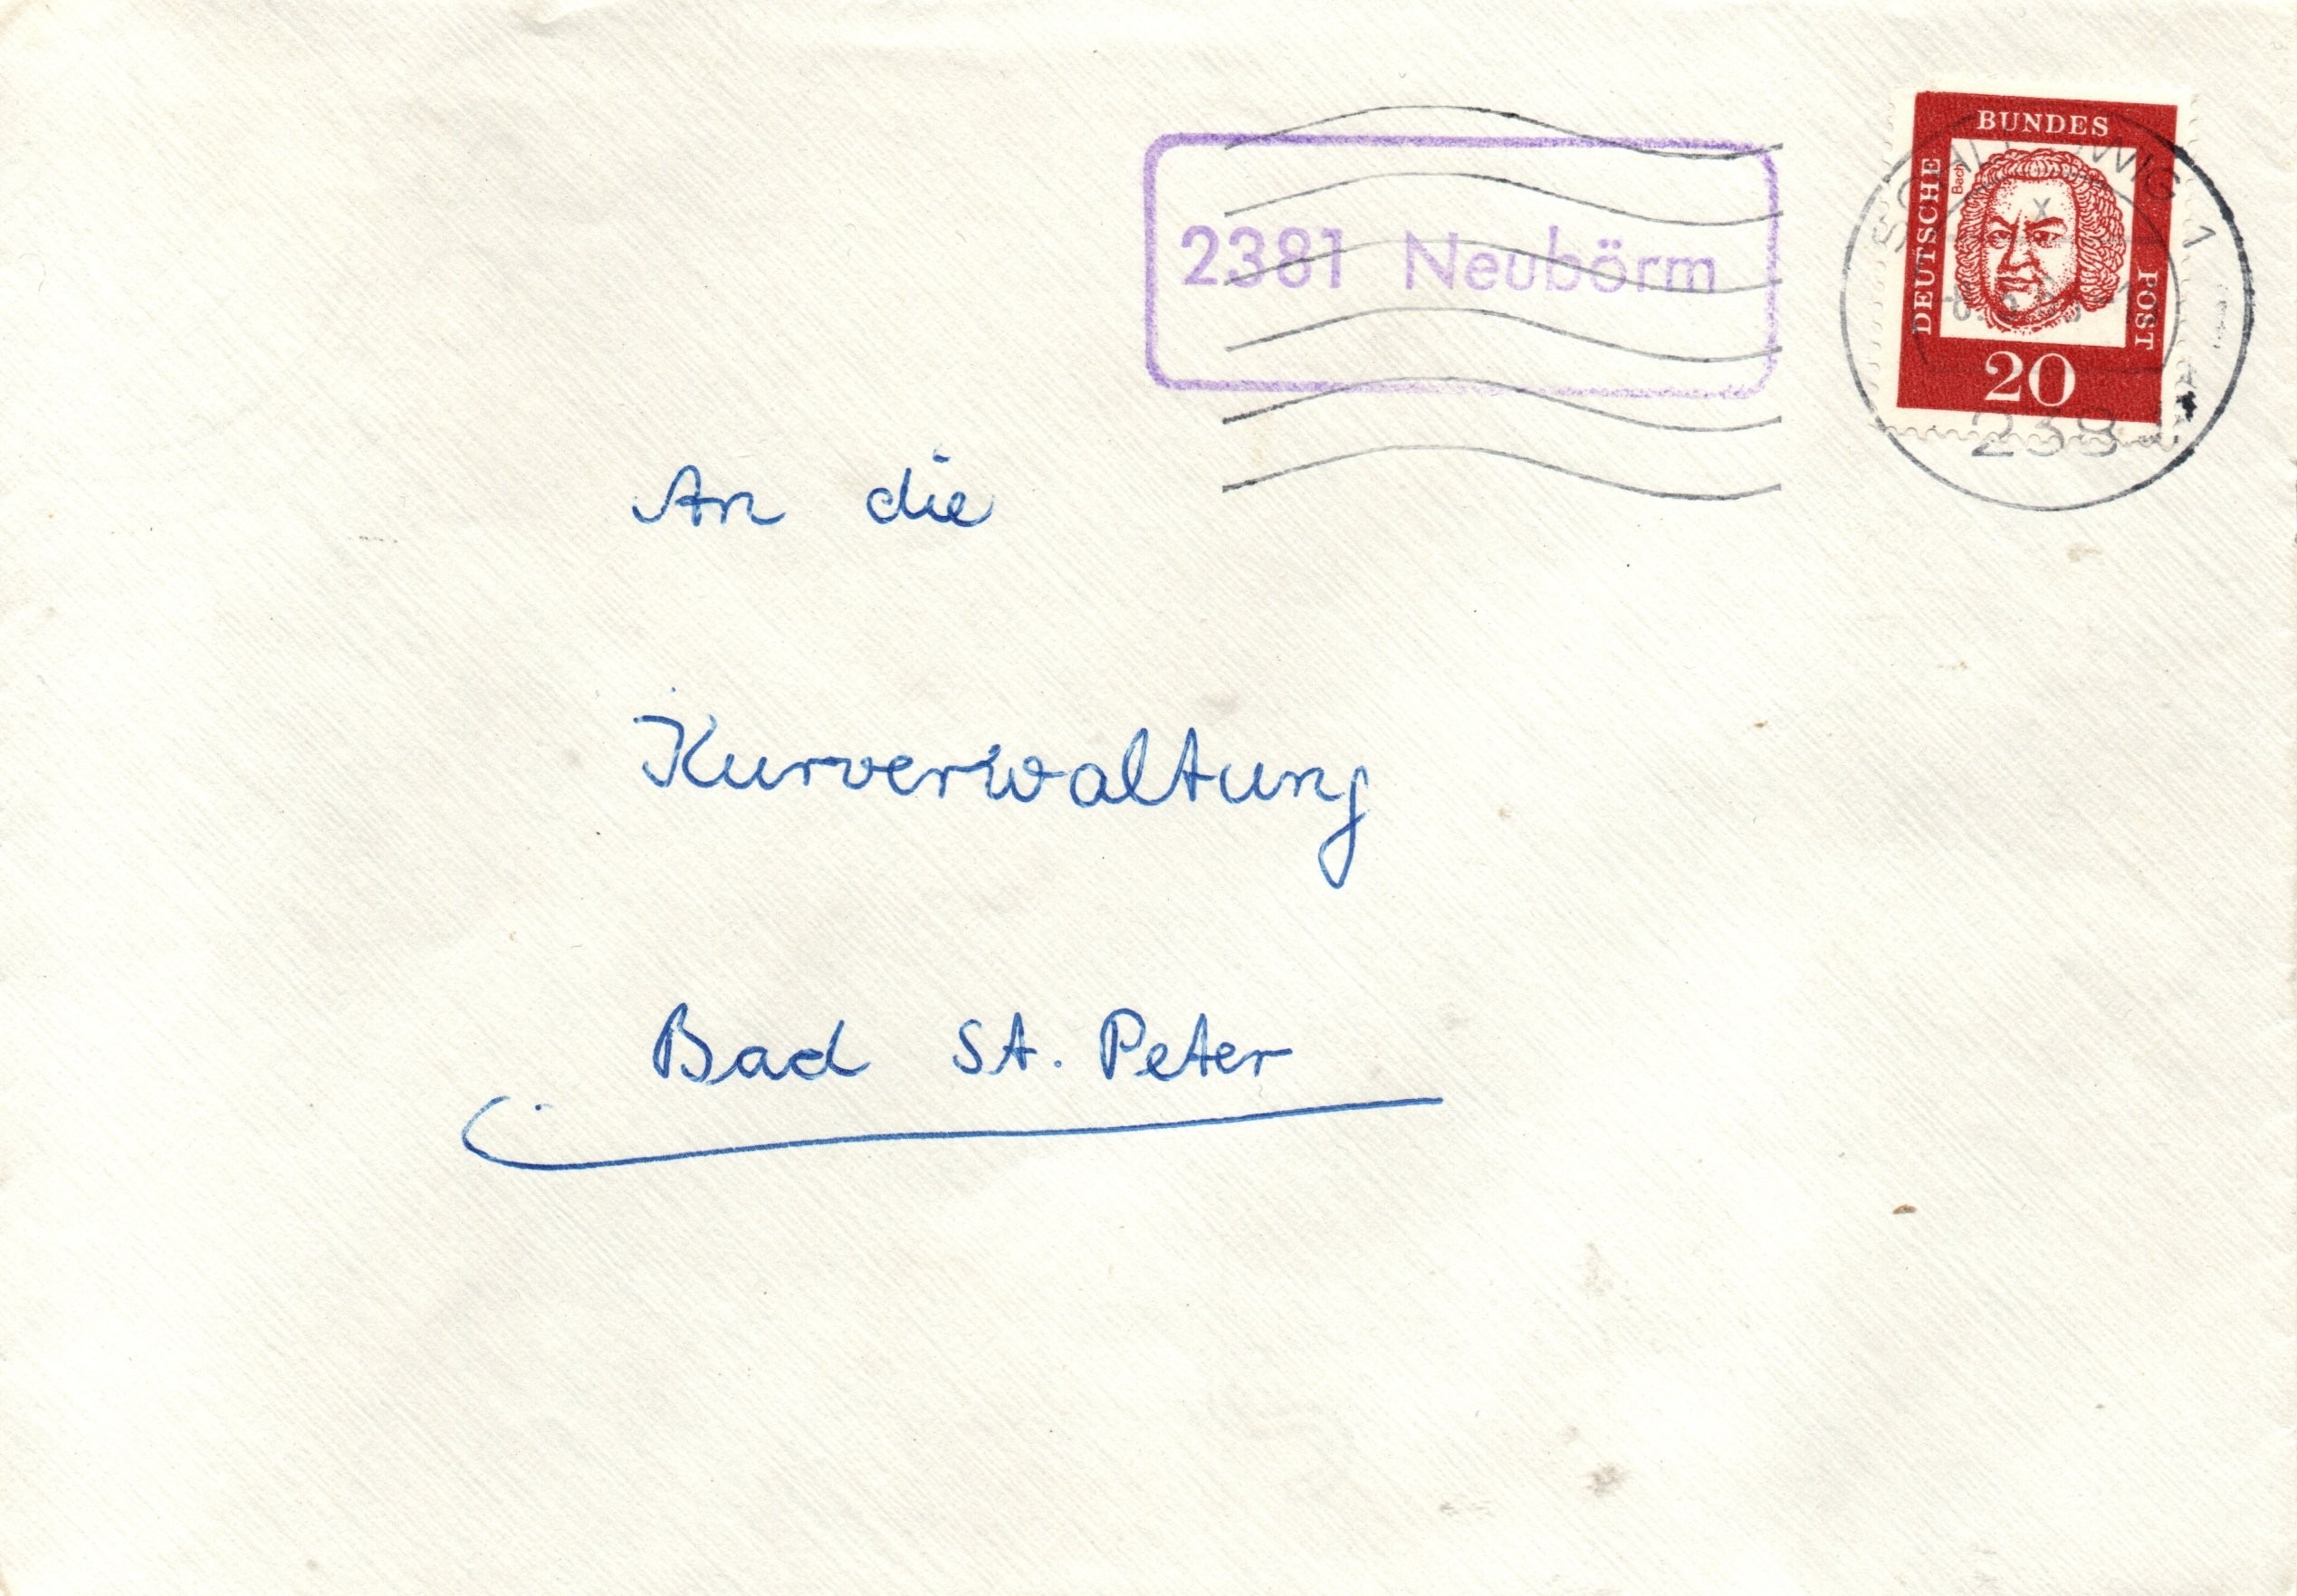 2381 Neubörm
DEUTSCHE
BUNDES
POST
Bach
20
SCHLESWIG 1
238
An die
Kurverwaltung
Bad St. Peter